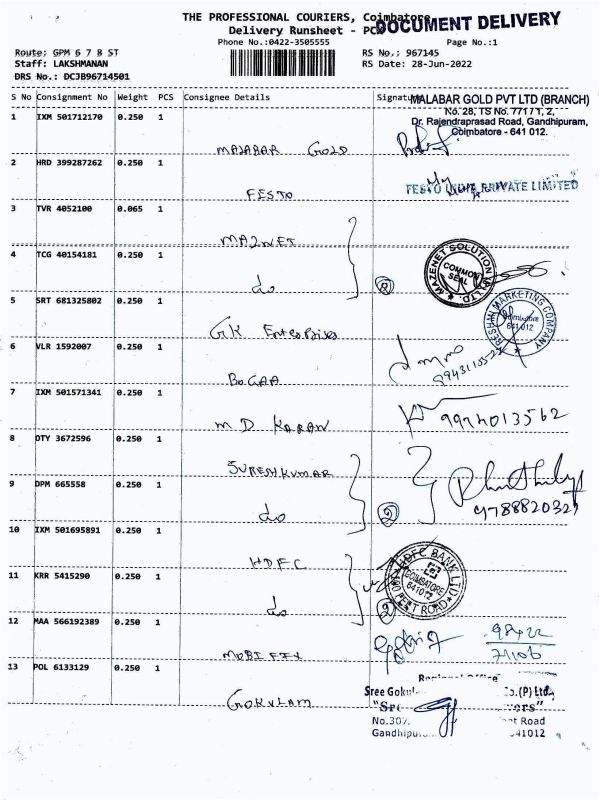 THE PROFESSIONAL COURIERS, Coimbatore
DOCUMENT DELIVERY
Delivery Runsheet - PCX
Phone No.:0422-3505555 Page No.:1
Route: GPM 6 7 8 ST RS No.: 967145
Staff: LAKSHMANAN RS Date: 28-Jun-2022
DRS No.: DCJB96714501
S No Consignment No Weight PCS Consignee Details Signature
MALABAR GOLD PVT LTD (BRANCH)
No. 28, TS No. 771 / 1, 2,
Dr. Rajendraprasad Road, Gandhipuram,
Coimbatore - 641 012.
1 IXM 501712170 0.250 1
MALABAR GOLD
2 HRD 399287262 0.250 1
FESTO INDIA PRIVATE LIMITED
FESTO
3 TVR 4052100 0.065 1
MAZNET
4 TCG 40154181 0.250 1
MAZENET SOLUTION PVT LTD.
COMMON SEAL
do
2
5 SRT 681325802 0.250 1
RESHN MARKETING COMPANY
Coimbatore
641 012
GK Enterprises
6 VLR 1592007 0.250 1
BOGAA
7 IXM 501571341 0.250 1
M.D KARAN
8 DTY 3672596 0.250 1
SURESHKUMAR
9 DPM 665558 0.250 1
do
2
10 IXM 501695891 0.250 1
HDFC
HDFC BANK LTD
COIMBATORE
641012
11 KRR 5415290 0.250 1
do
2
12 MAA 566192389 0.250 1
98422
71106
13 POL 6133129 0.250 1
Regional Office
Sree Gokul Co.(P) Ltd.,
GOKULAM
No.307, Road
641012